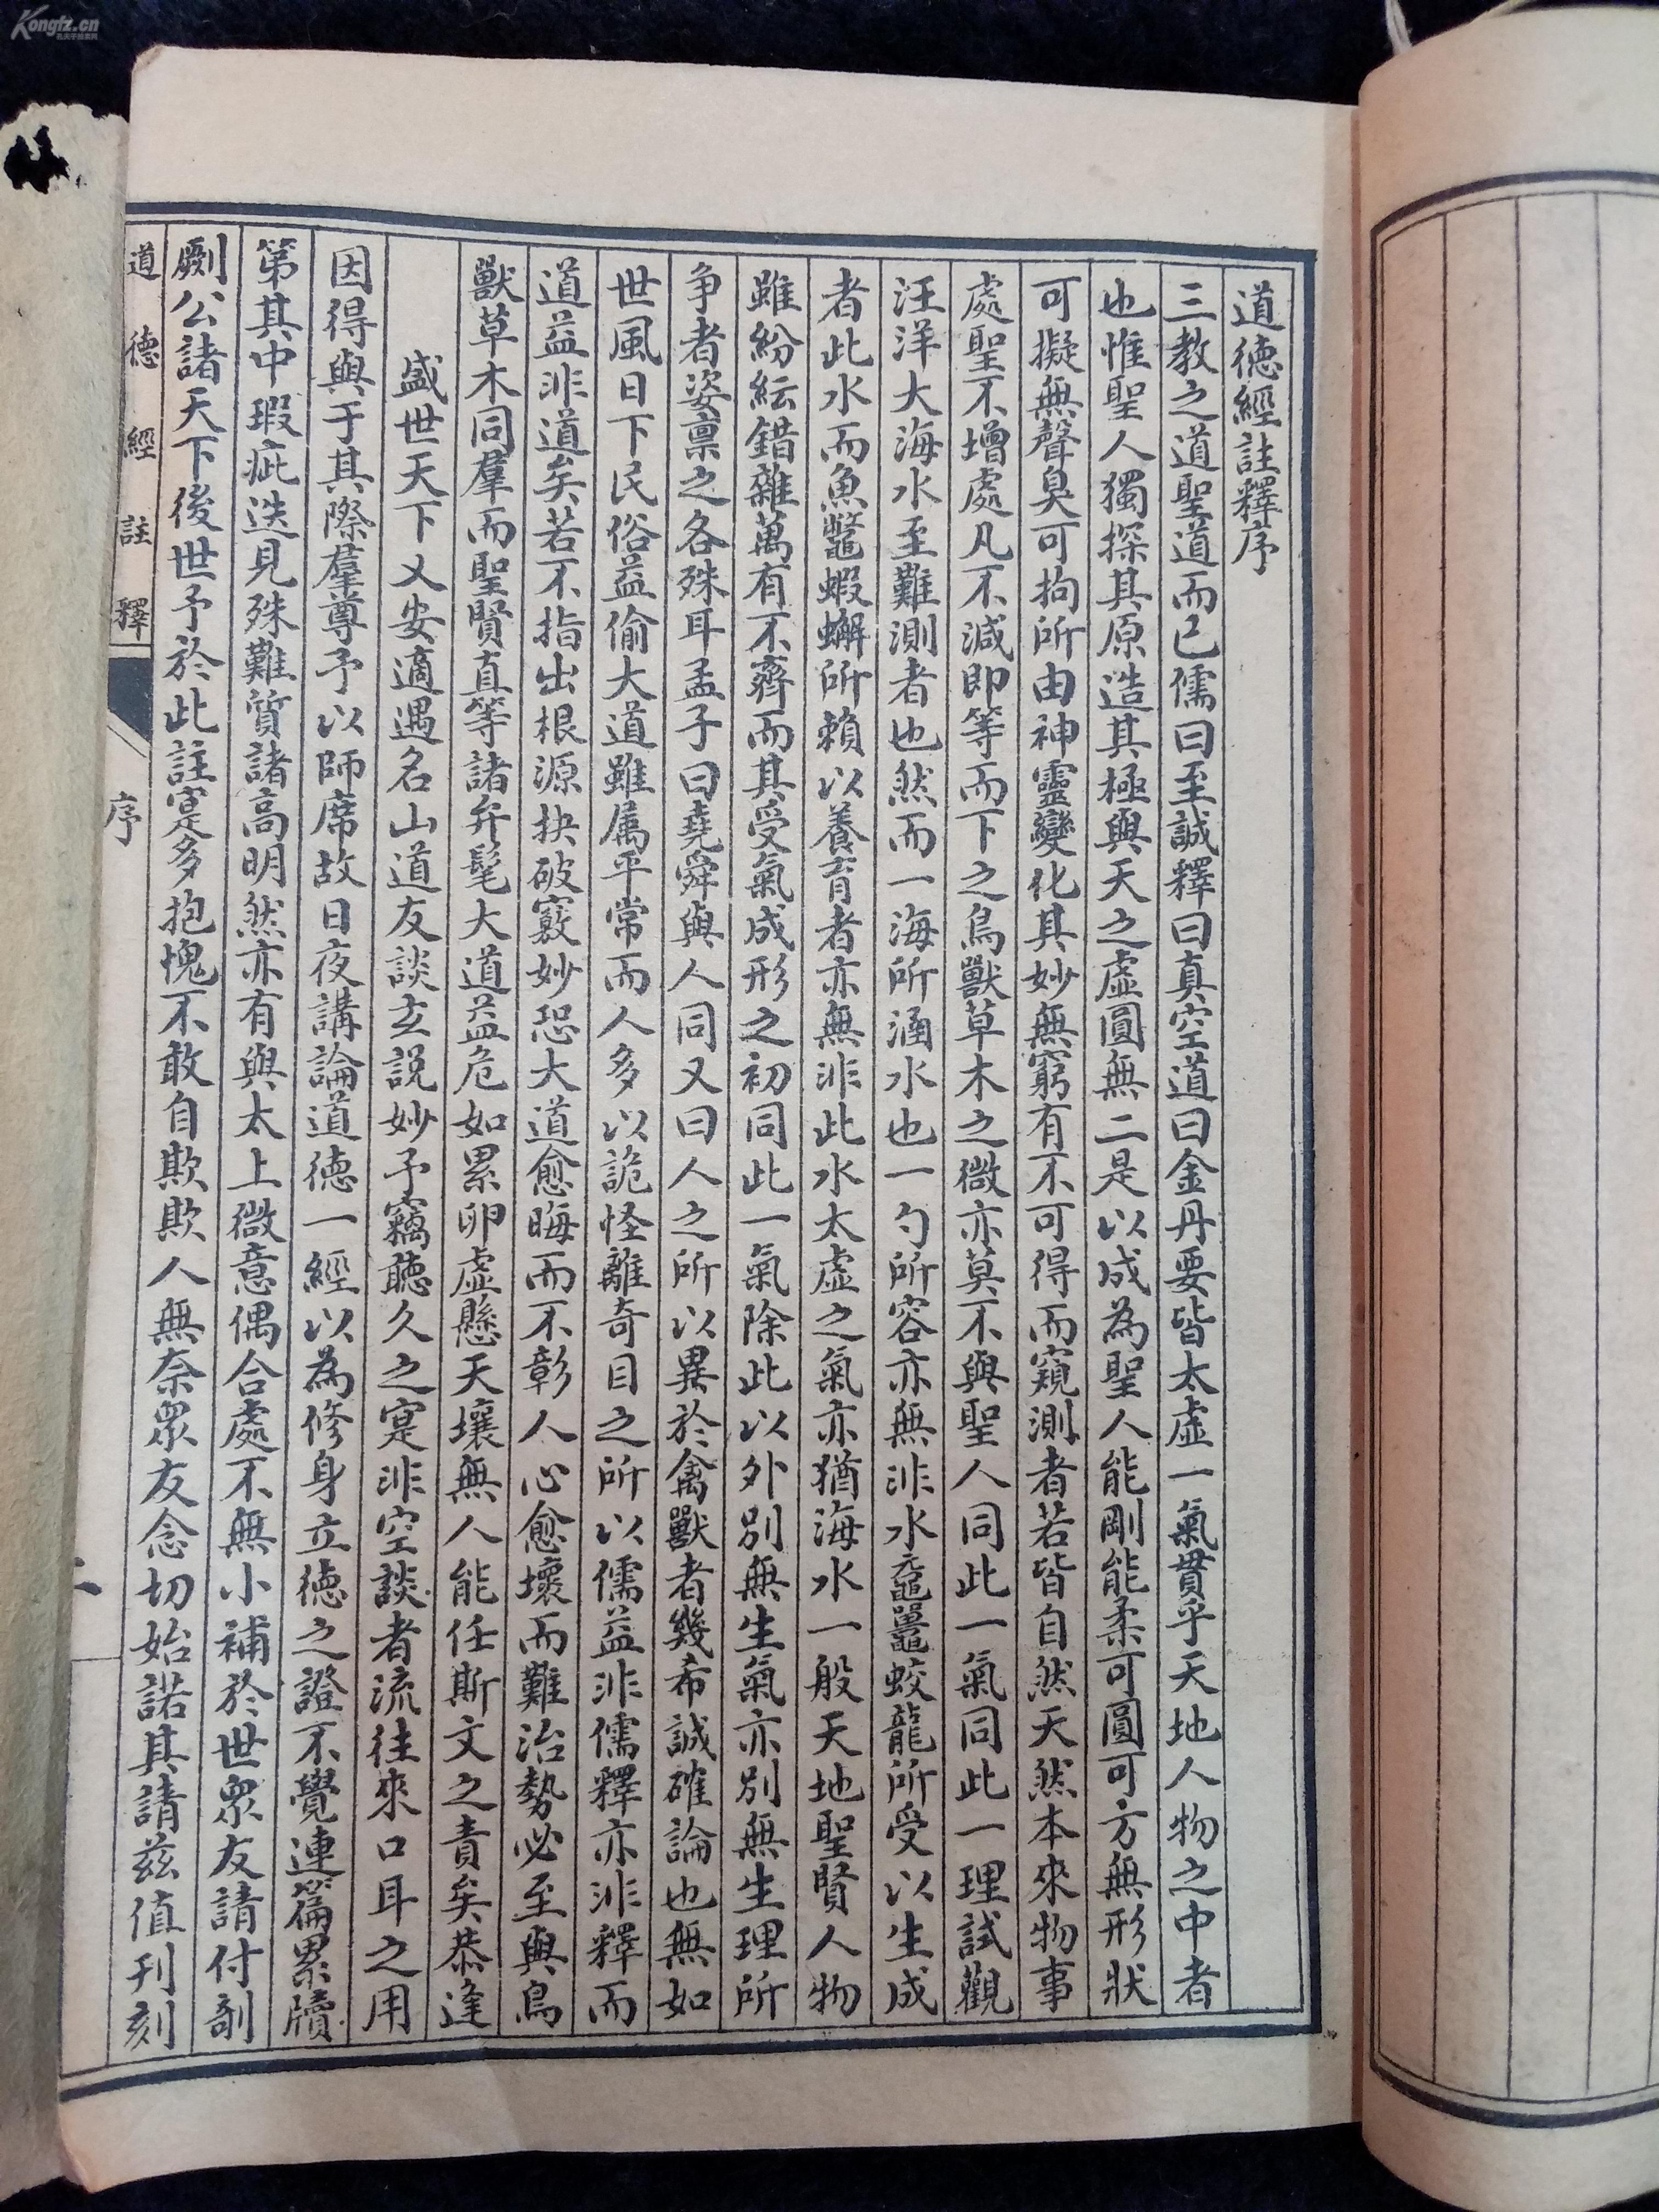 道德經註釋序
三教之道聖道而已儒曰至誠釋曰真空道曰金丹要皆太虛一氣貫乎天地人物之中者
也惟聖人獨探其原造其極與天之虛圓無二是以成為聖人能剛能柔可圓可方無形狀
可擬無聲臭可拘所由神靈變化其妙無窮有不可得而窺測者若皆自然天然本來物事
處聖不增處凡不減即等而下之鳥獸草木之微亦莫不與聖人同此一氣同此一理試觀
汪洋大海水至難測者也然而一海所涵水也一勺所容亦無非水黿鼉蛟龍所受以生成
者此水而魚鼈蝦蠏所賴以養育者亦無非此水太虛之氣亦猶海水一般天地聖賢人物
雖紛紜錯雜萬有不齊而其受氣成形之初同此一氣除此以外別無生氣亦別無生理所
爭者姿稟之各殊耳孟子曰堯舜與人同又曰人之所以異於禽獸者幾希誠確論也無如
世風日下民俗益偷大道雖屬平常而人多以詭怪離奇目之所以儒益非儒釋亦非釋而
道益非道矣若不指出根源抉破竅妙恐大道愈晦而不彰人心愈壞而難治勢必至與鳥
獸草木同羣而聖賢真等諸弁髦大道益危如累卵虛懸天壤無人能任斯文之責矣恭逢
盛世天下乂安適遇名山道友談玄說妙予竊聽久之寔非空談者流往來口耳之用
因得與于其際羣尊予以師席故日夜講論道德一經以為修身立德之證不覺連篇累牘
第其中瑕疵迭見殊難質諸高明然亦有與太上微意偶合處不無小補於世眾友請付剞
劂公諸天下後世予於此註寔多抱愧不敢自欺欺人無奈眾友念切始諾其請茲值刊刻
道德經註釋
序
一
Kongfz.cn
孔夫子旧书网